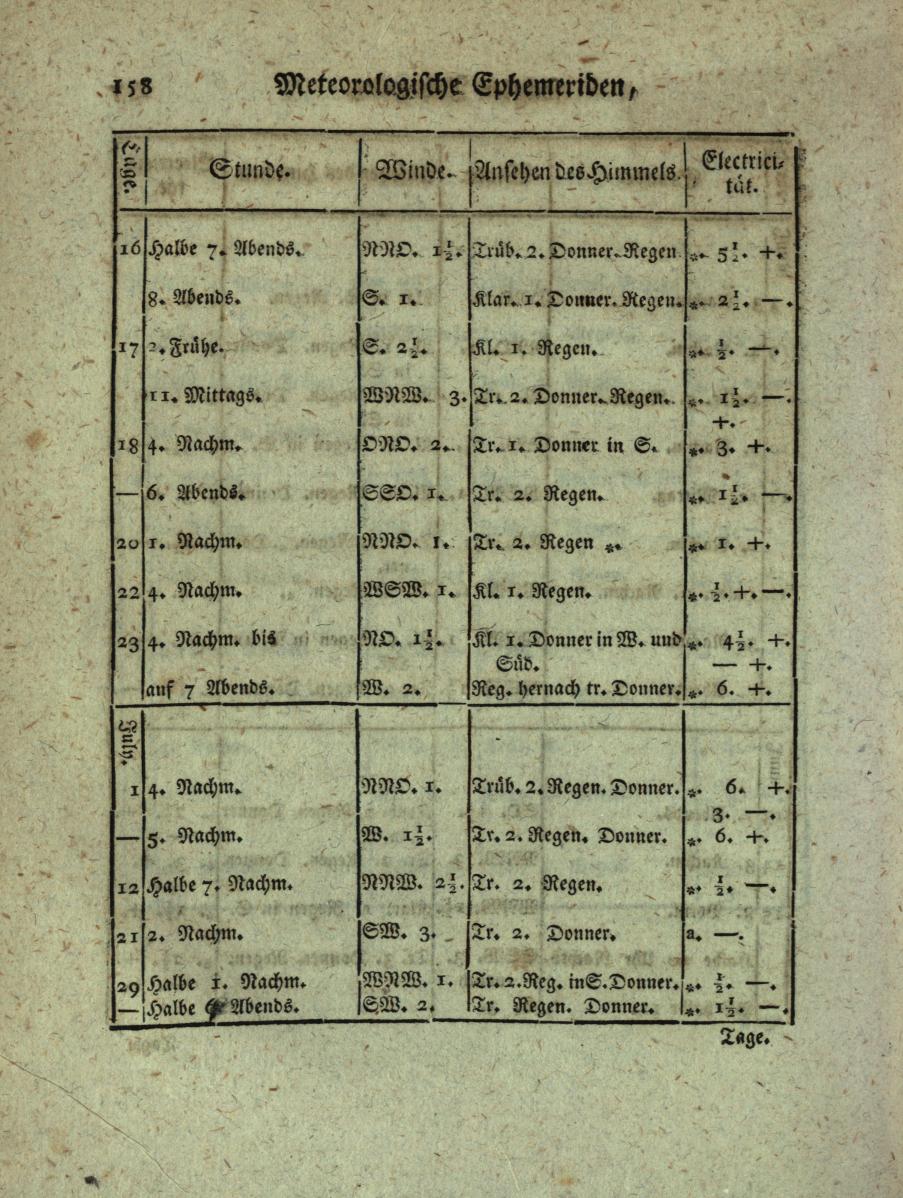 158 Meteorologische Ephemeriden,
Tage. Stunde. Winde. Ansehen des Himmels. Electrici-
tät.
16 Halbe 7. Abends. NNO. 1½. Trüb. 2. Donner. Regen *. 5½. +.
8. Abends. S. 1. Klar. 1. Donner. Regen. *. 2½. —.
17 2. Frühe. S. 2½. Kl. 1. Regen. *. ½. —.
11. Mittags. WNW. 3. Tr. 2. Donner. Regen. *. 1½. —.
+.
18 4. Nachm. ONO. 2. Tr. 1. Donner in S. *. 3. +.
— 6. Abends. SSO. 1. Tr. 2. Regen. *. 1½. —.
20 1. Nachm. NNO. 1. Tr. 2. Regen *. *. 1. +.
22 4. Nachm. WSW. 1. Kl. 1. Regen. *. ½. +. —.
23 4. Nachm. bis NO. 1½. Kl. 1. Donner in W. und *. 4½. +.
Süd. — +.
auf 7 Abends. W. 2. Reg. hernach tr. Donner. *. 6. +.
July.
1 4. Nachm. NNO. 1. Trüb. 2. Regen. Donner. *. 6. +.
3. —.
— 5. Nachm. W. 1½. Tr. 2. Regen. Donner. *. 6. +.
12 Halbe 7. Nachm. NNW. 2½. Tr. 2. Regen. *. ½. —.
21 2. Nachm. SW. 3. Tr. 2. Donner. a. —.
29 Halbe 1. Nachm. WNW. 1. Tr. 2. Reg. in S. Donner. *. ½. —.
— Halbe Abends. SW. 2. Tr. Regen. Donner. *. 1½. —.
Tage.